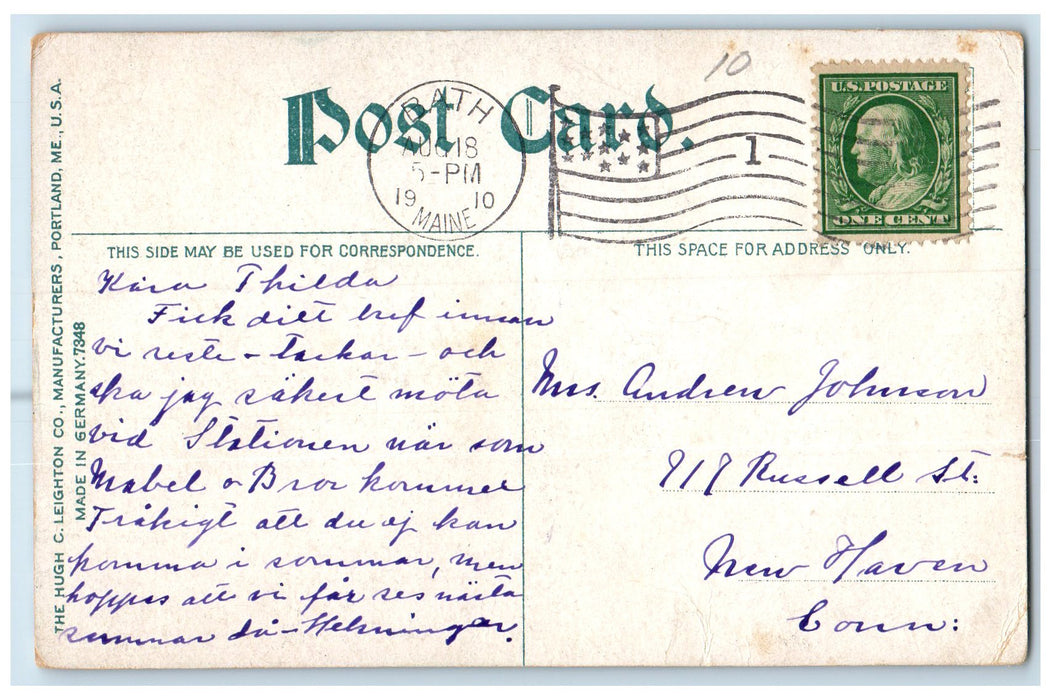 10
Post Card.
BATH
AUG 18
5-PM
19 10
MAINE
1
U.S. POSTAGE
ONE CENT
THIS SIDE MAY BE USED FOR CORRESPONDENCE.
THIS SPACE FOR ADDRESS ONLY.
Kära Thilda
Fick ditt bref innan
vi reste - tackar - och
ska jag säkert möta
vid Stationen när som
Mabel o Bror kommer
Tråkigt att du ej kan
komma i sommar, men
hoppas att vi får ses nästa
sommar då - Helsningar.
Mrs. Andrew Johnson
717 Russell St:
New Haven
Conn:
THE HUGH C. LEIGHTON CO., MANUFACTURERS, PORTLAND, ME., U.S.A.
MADE IN GERMANY. 7348